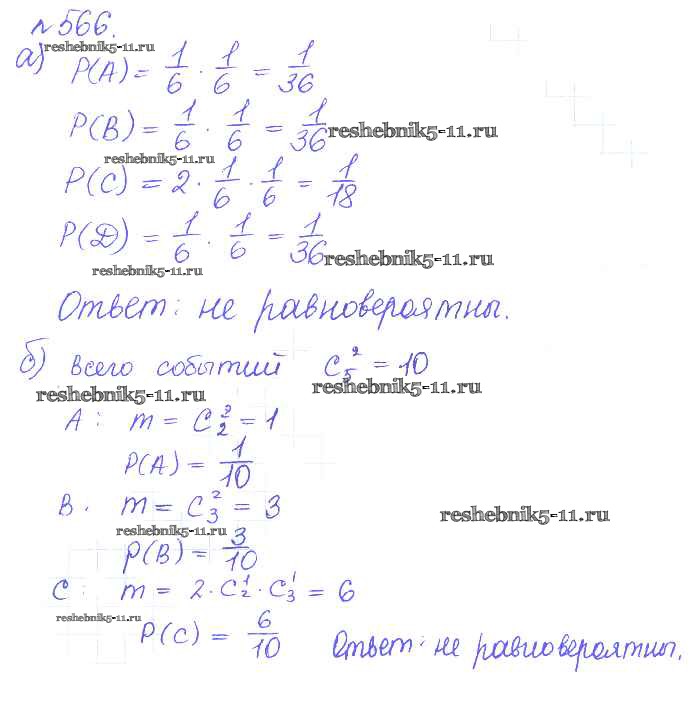 № 566.
reshebnik5-11.ru
а) P(A) = 1/6 · 1/6 = 1/36
P(B) = 1/6 · 1/6 = 1/36
reshebnik5-11.ru
reshebnik5-11.ru
P(C) = 2 · 1/6 · 1/6 = 1/18
P(D) = 1/6 · 1/6 = 1/36
reshebnik5-11.ru
reshebnik5-11.ru
Ответ: не равновероятны.
б) всего событий C₅² = 10
reshebnik5-11.ru
reshebnik5-11.ru
A: m = C₂² = 1
P(A) = 1/10
B. m = C₃² = 3
reshebnik5-11.ru
reshebnik5-11.ru
P(B) = 3/10
C: m = 2 · C₂¹ · C₃¹ = 6
reshebnik5-11.ru
P(C) = 6/10 Ответ: не равновероятны.